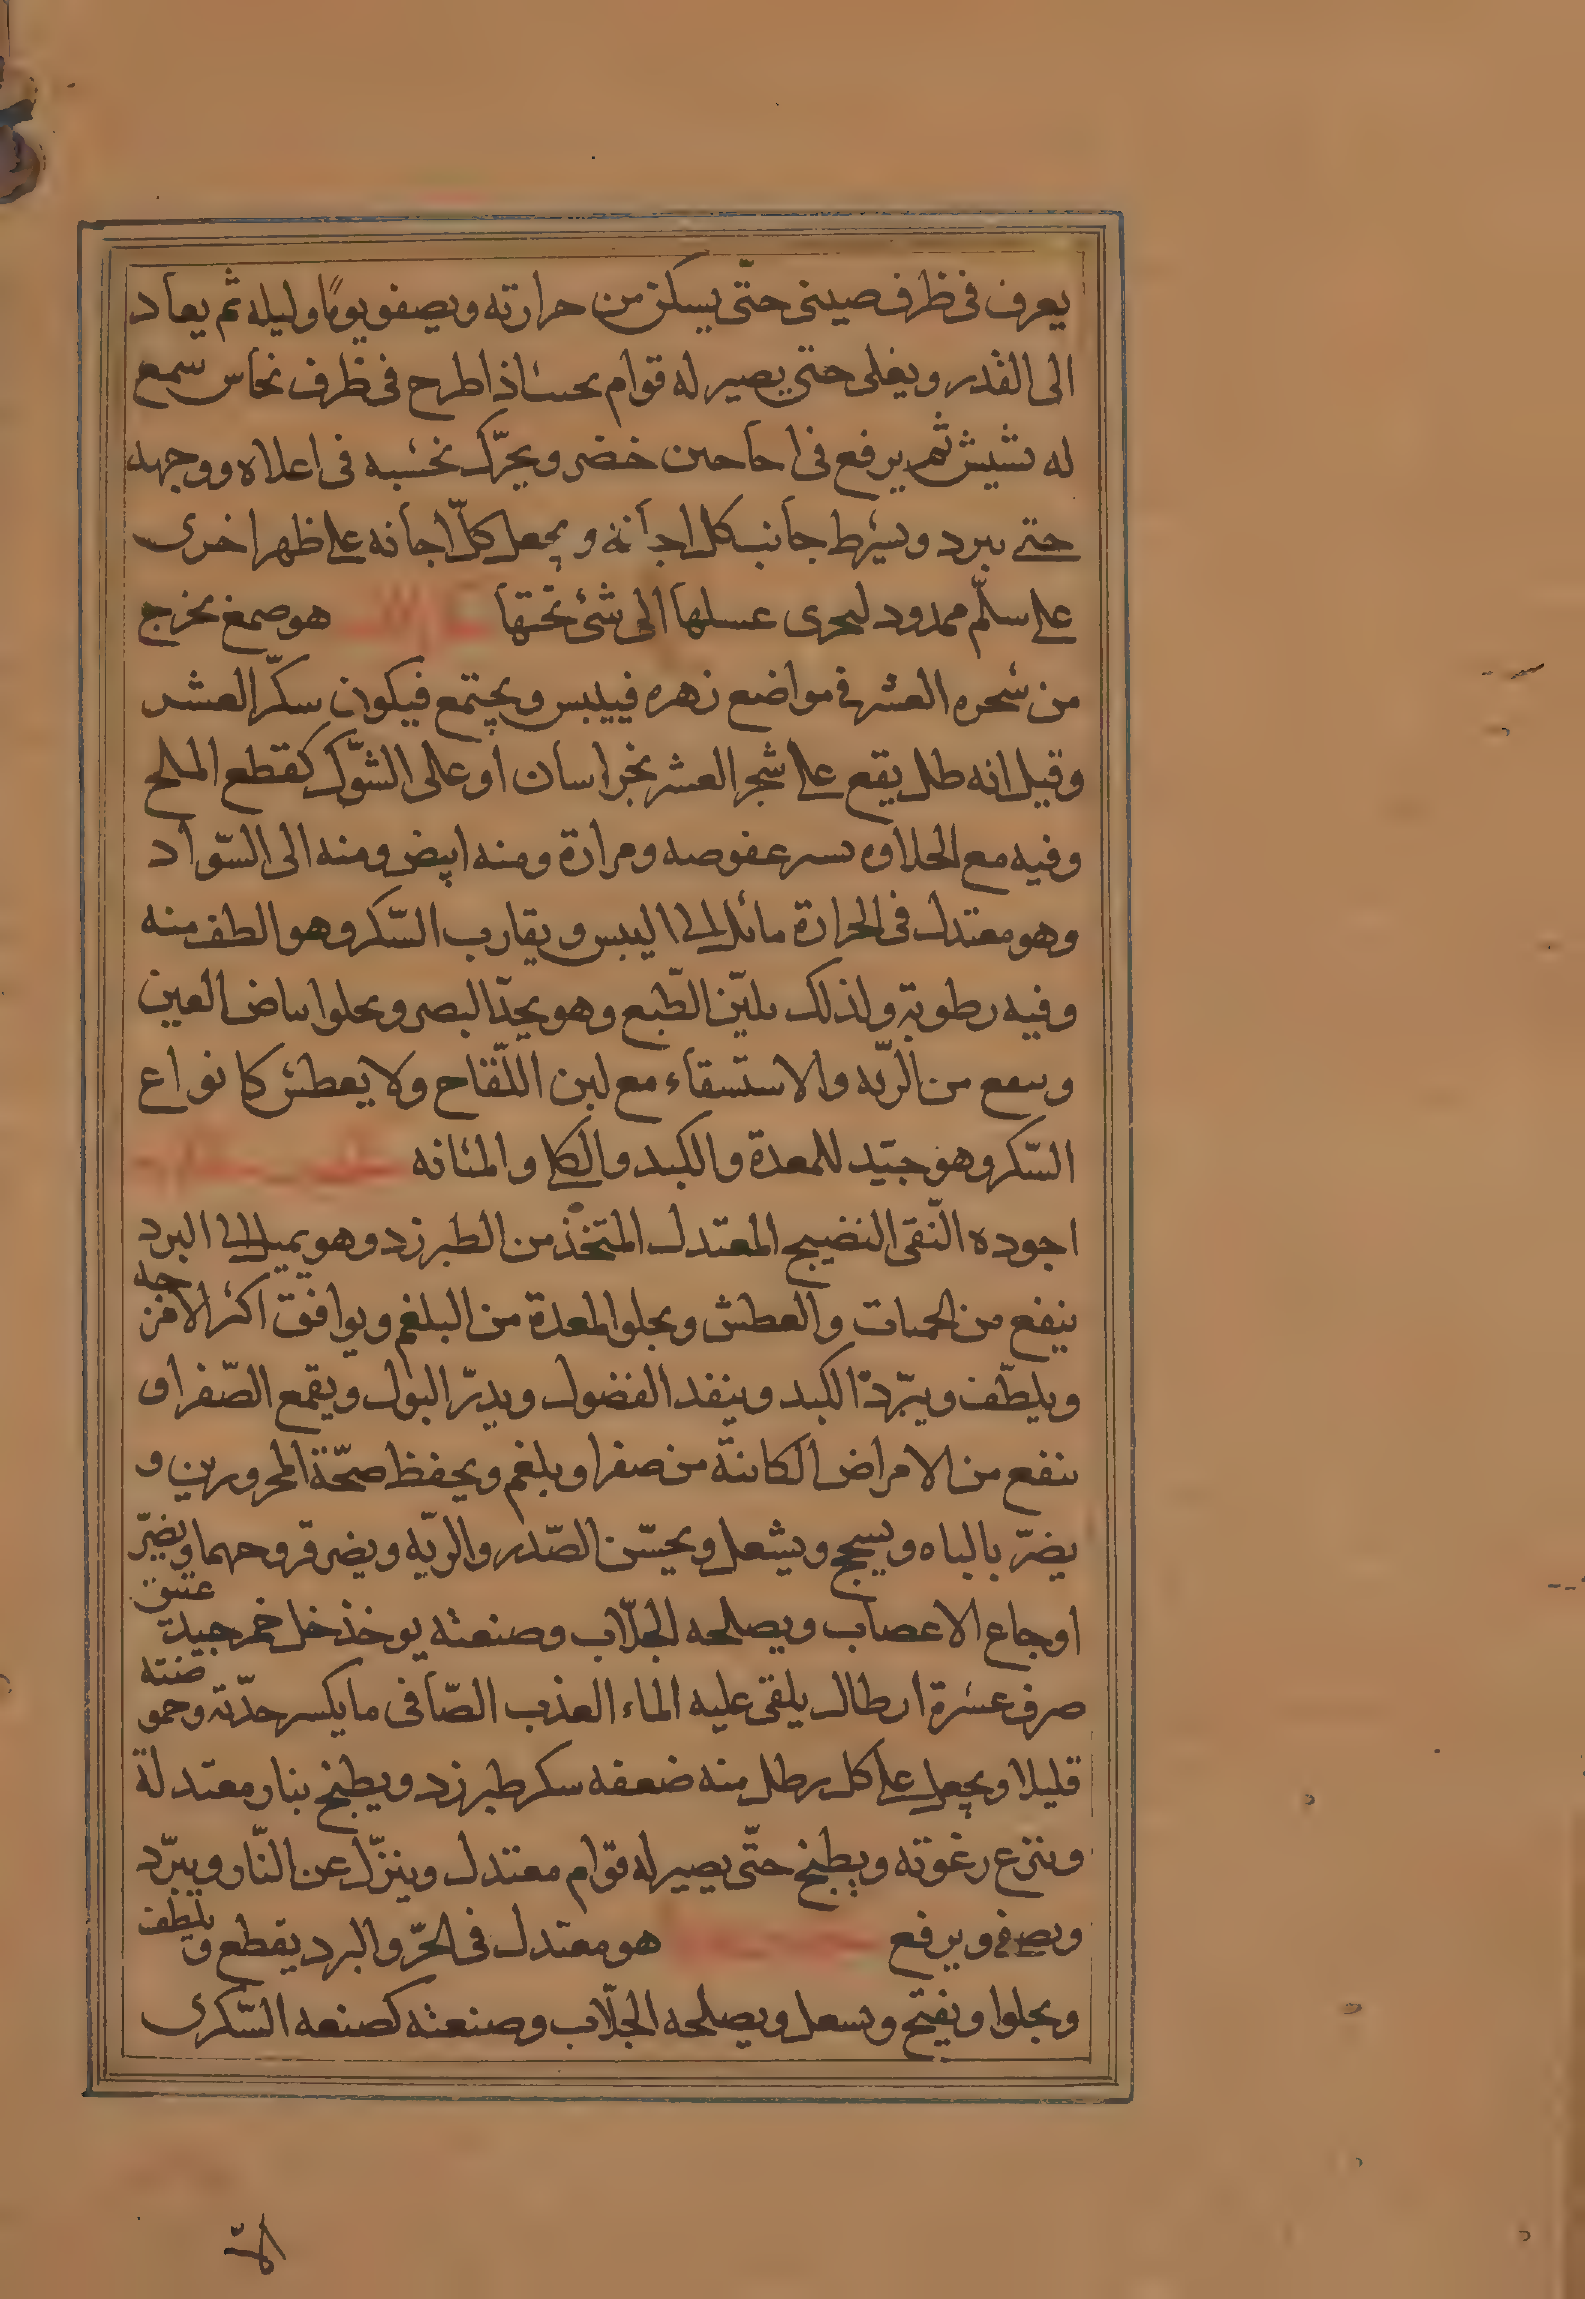 يعرف فى ظرف صينى حتّى يسكن من حرارته ويصفو يومًا وليله ثم يعاد
الى القدر ويغلى حتى يصير له قوام بحيث اذا طرح فى ظرف نحاس سمع
له نشيش ثم يرفع فى اجاجين خضر ويحرّك بخشبه فى اعلاه ووجهه
حتى يبرد ويشرط جانب كل اجانة ويجعل كلّ اجانه على ظهر اخرى
على سلّم ممدود ليجرى عسلها الى شئ تحتها هو صمغ يخرج
من شجره العشر فى مواضع زهره فييبس ويجتمع فيكون سكّر العشر
وقيل انه طل يقع على شجر العشر بخراسان او على الشّوك كقطع الملح
وفيه مع الحلاوه يسير عفوصه ومرارة ومنه ابيض ومنه الى السّواد
وهو معتدل فى الحرارة مائل الى اليبس ويقارب السّكر وهو الطف منه
وفيه رطوبة ولذلك يليّن الطّبع وهو يحدّ البصر ويجلوا بياض العين
وينفع من الريّه والاستسقاء مع لبن اللّقاح ولا يعطش كانواع
السّكر وهو جيّد للمعدة والكبد والكلى والمثانه
اجوده النّقى النضيج المعتدل المتّخذ من الطبرزد وهو يميل الى البرد
ينفع من الحميات والعطش ويجلو المعدة من البلغم ويوافق اكثر الامزجه
ويلطّف ويبرّد الكبد وينفد الفضول ويدرّ البول ويقمع الصّفرا و
ينفع من الامراض الكائنة من صفرا وبلغم ويحفظ صحّة المحرورين و
يضرّ بالباه ويسحج ويسعل ويخشّن الصّدر والريّه ويضر قروحهما ويضرّ
اوجاع الاعصاب ويصلحه الجلّاب وصنعته يوخذ خل خمر جيد عتيق
صرف عشرة ارطال يلقى عليه الماء العذب الصّافى ما يكسر حدّته وحموضته
قليلا ويجعل على كل رطل منه ضعفه سكر طبرزد ويطبخ بنار معتدلة
وينزع رغوته ويطبخ حتّى يصير له قوام معتدل وينزّل عن النّار ويبرّد
ويصفى ويرفع هو معتدل فى الحرّ والبرد يقطع ويلطف
ويجلوا ويفتح ويسعل ويصلحه الجلّاب وصنعته كصنعه السّكرى
الّا